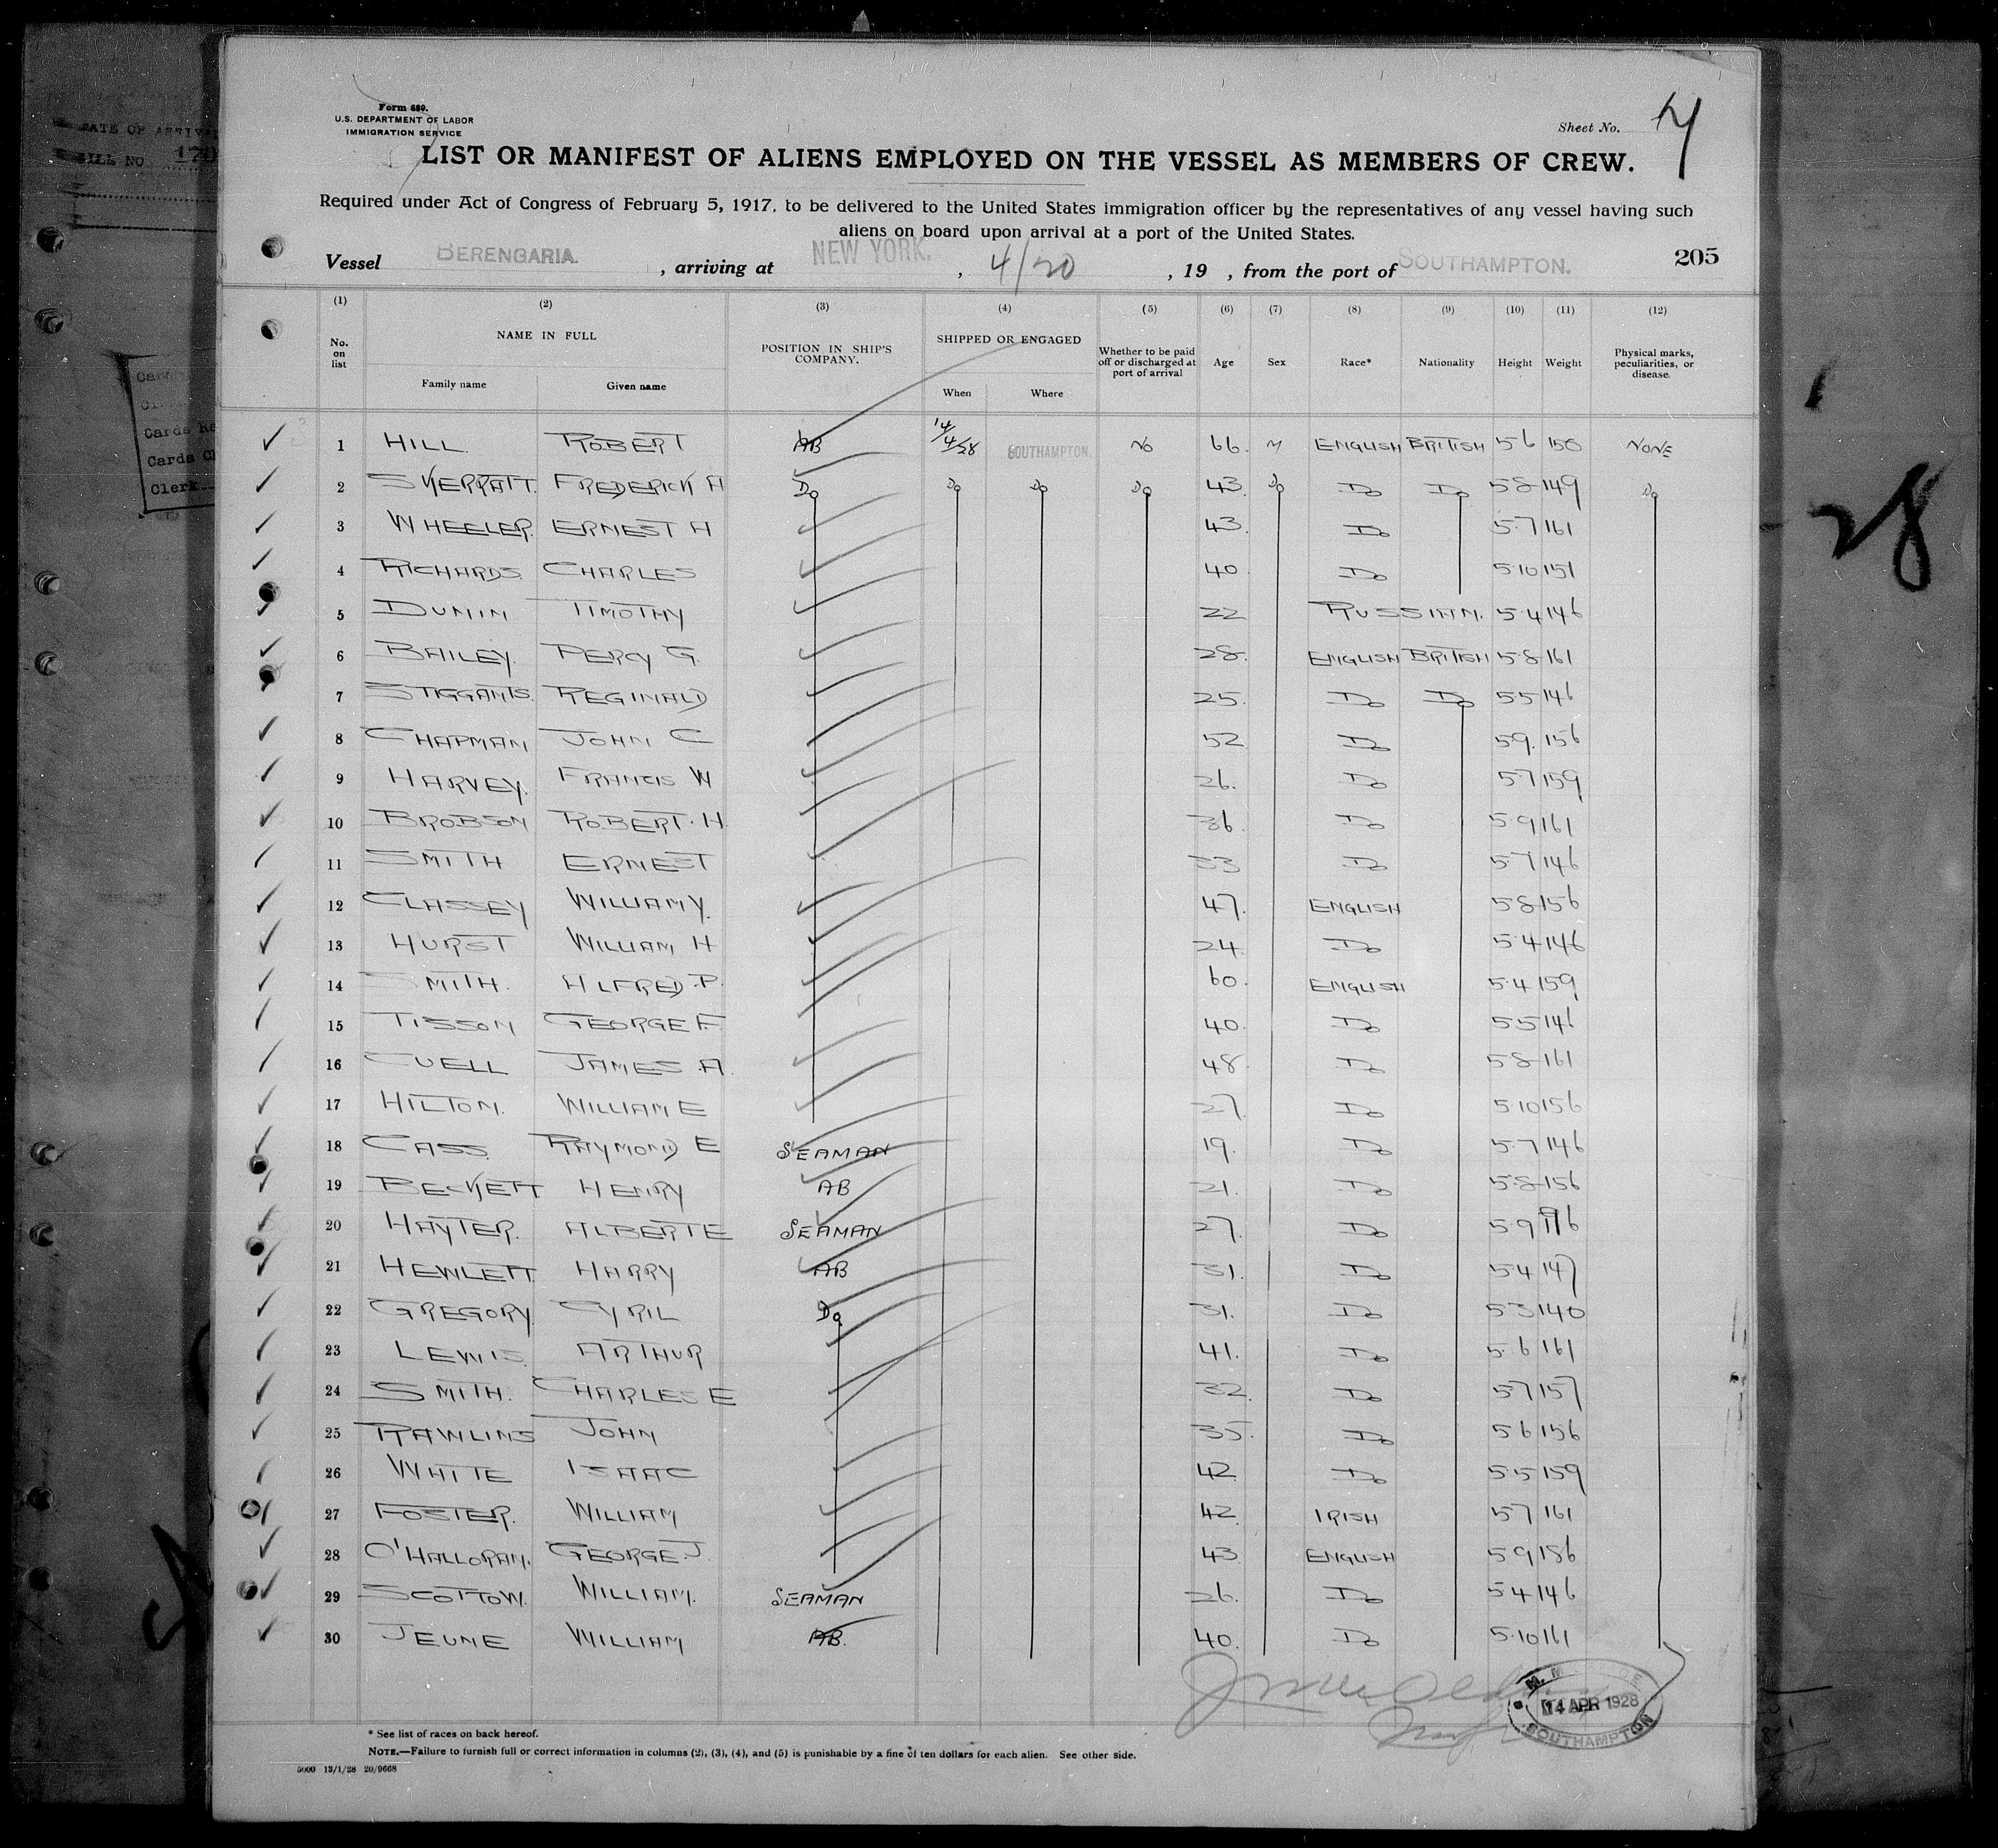 Form 689.
U.S. DEPARTMENT OF LABOR
IMMIGRATION SERVICE
Sheet No. 4
LIST OR MANIFEST OF ALIENS EMPLOYED ON THE VESSEL AS MEMBERS OF CREW.
Required under Act of Congress of February 5, 1917, to be delivered to the United States immigration officer by the representatives of any vessel having such
aliens on board upon arrival at a port of the United States.
Vessel BERENGARIA. , arriving at NEW YORK. , 4/20 , 19 , from the port of SOUTHAMPTON. 205
(1) (2) (3) (4) (5) (6) (7) (8) (9) (10) (11) (12)
No. on list NAME IN FULL Family name Given name POSITION IN SHIP'S COMPANY. SHIPPED OR ENGAGED When Where Whether to be paid off or discharged at port of arrival Age Sex Race* Nationality Height Weight Physical marks, peculiarities, or disease.
1 HILL ROBERT AB 14/4/28 SOUTHAMPTON. NO 66 M ENGLISH BRITISH 5 6 150 NONE
2 SKERRATT. FREDERICK A Do Do Do Do 43. Do Do Do 5 8 149 Do
3 WHEELER. ERNEST H 43. Do 5.7 161
4 RICHARDS. CHARLES 40. Do 5.10 151
5 DUNIN TIMOTHY 22 RUSSIAN. 5.4 146
6 BAILEY. PERCY G. 28. ENGLISH BRITISH 5.8 161
7 STIGGANTS. REGINALD 25. Do Do 5.5 146
8 CHAPMAN JOHN C 52 Do 5.9. 156
9 HARVEY. FRANCIS W 26. Do 5.7 159
10 BROBSON ROBERT. H. 36 Do 5.9 161
11 SMITH ERNEST 33 Do 5.7 146
12 CLASSEY WILLIAM Y. 47. ENGLISH 5.8 156
13 HURST WILLIAM H 24. Do 5.4 146
14 SMITH. ALFRED. P. 60. ENGLISH 5.4 159
15 TISSON GEORGE F. 40. Do 5.5 146
16 CUELL JAMES. A. 48. Do 5.8 161
17 HILTON. WILLIAM E 27. Do 5.10 156
18 CASS. RAYMOND E SEAMAN 19. Do 5.7 146
19 BECKETT HENRY AB 21. Do 5.8 156
20 HAYTER. ALBERT E SEAMAN 27. Do 5.9
21 HEWLETT HARRY AB 31. Do 5.4 147
22 GREGORY. CYRIL Do 31. Do 5.3 140
23 LEWIS. ARTHUR 41. Do 5.6 161
24 SMITH. CHARLES E 32. Do 5.7 157
25 RAWLINS JOHN 35. Do 5.6 156
26 WHITE ISAAC 42. Do 5.5 159
27 FOSTER. WILLIAM 42. IRISH 5.7 161
28 O'HALLORAN. GEORGE. J. 43 ENGLISH 5.9 186
29 SCOTTOW. WILLIAM. SEAMAN 26. Do 5.4 146
30 JEUNE WILLIAM AB. 40. Do 5.10 161
14 APR 1928
SOUTHAMPTON
* See list of races on back hereof.
NOTE.—Failure to furnish full or correct information in columns (2), (3), (4), and (5) is punishable by a fine of ten dollars for each alien. See other side.
5000 13/1/28 20/9668